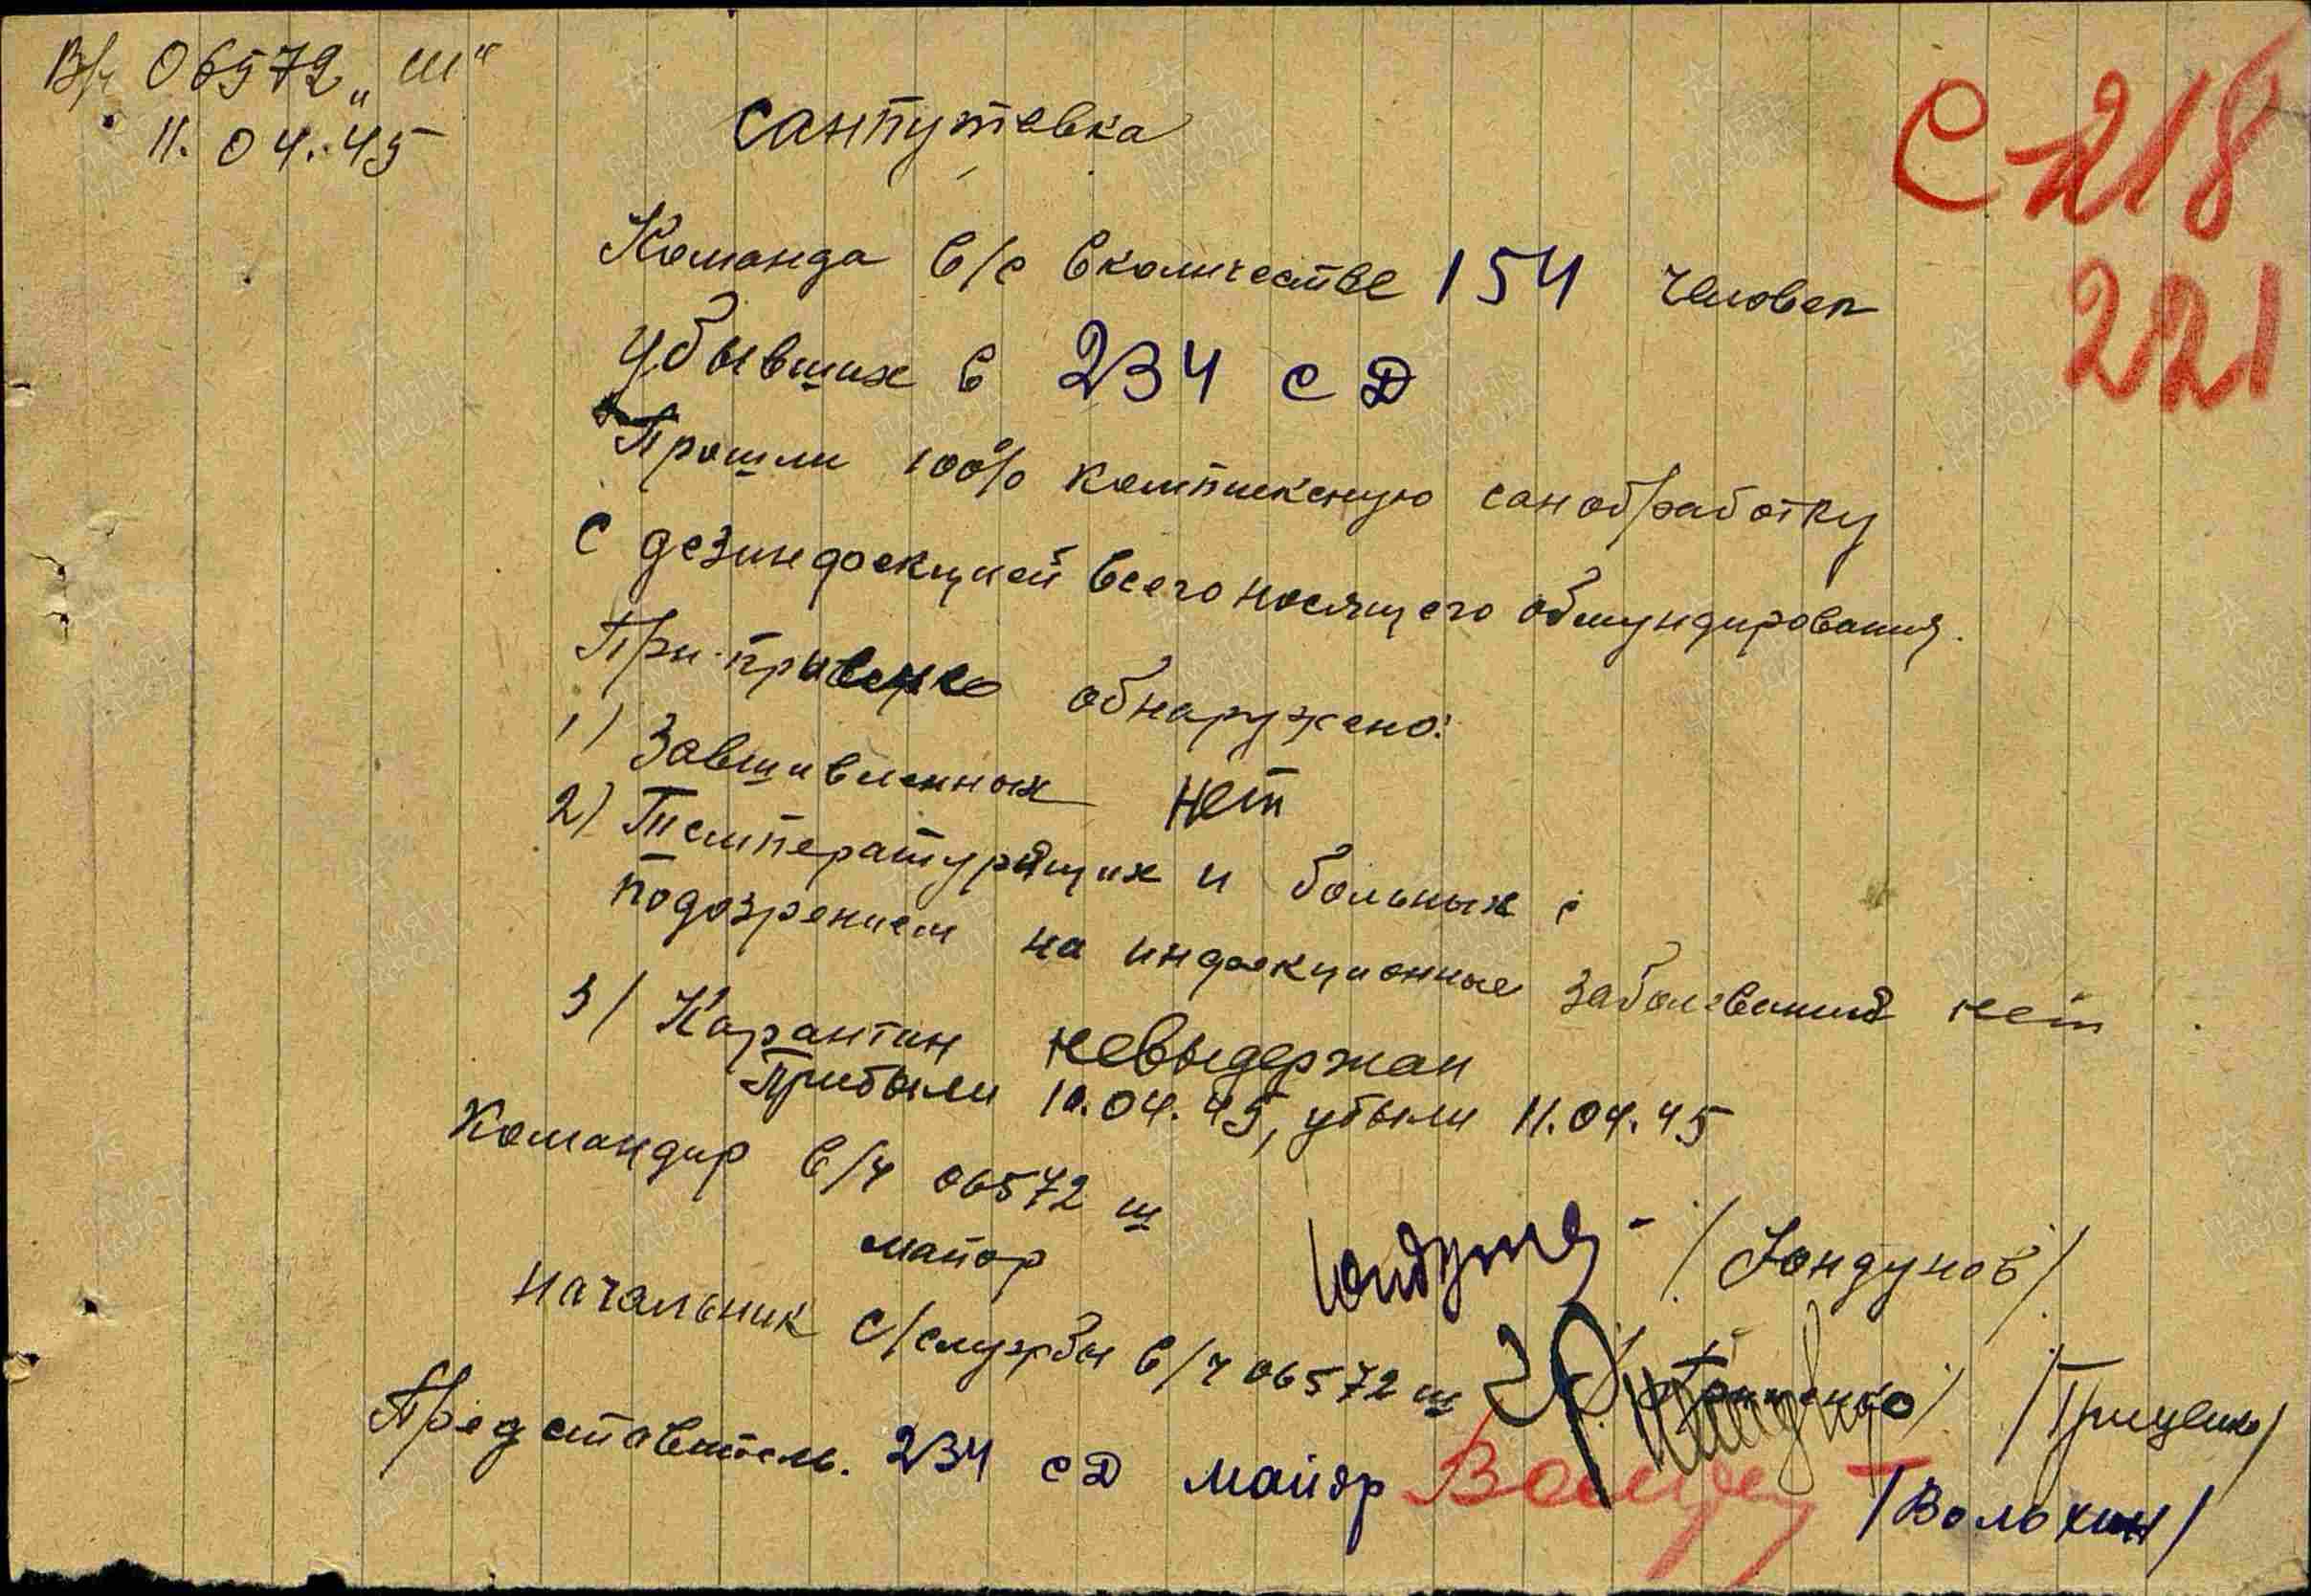 В/ч 06572 „Ш“
11.04.45
С 218
221
Санпутовка
Команда в/с в количестве 154 человек
убывших в 234 сД
Прошли 100% комплексную санобработку
с дезинфекцией всего носящего обмундирования.
При проверке обнаружено:
1) Завшивленных нет
2) Температурящих и больных с
подозрением на инфекционные заболевания нет
3) Карантин невыдержан
Прибыли 10.04.45, убыли 11.04.45
Командир в/ч 06572 ш
майор /Юндунов/
Начальник с/службы в/ч 06572 ш /Гриценко/
Представитель. 234 сД майор /Волохин/